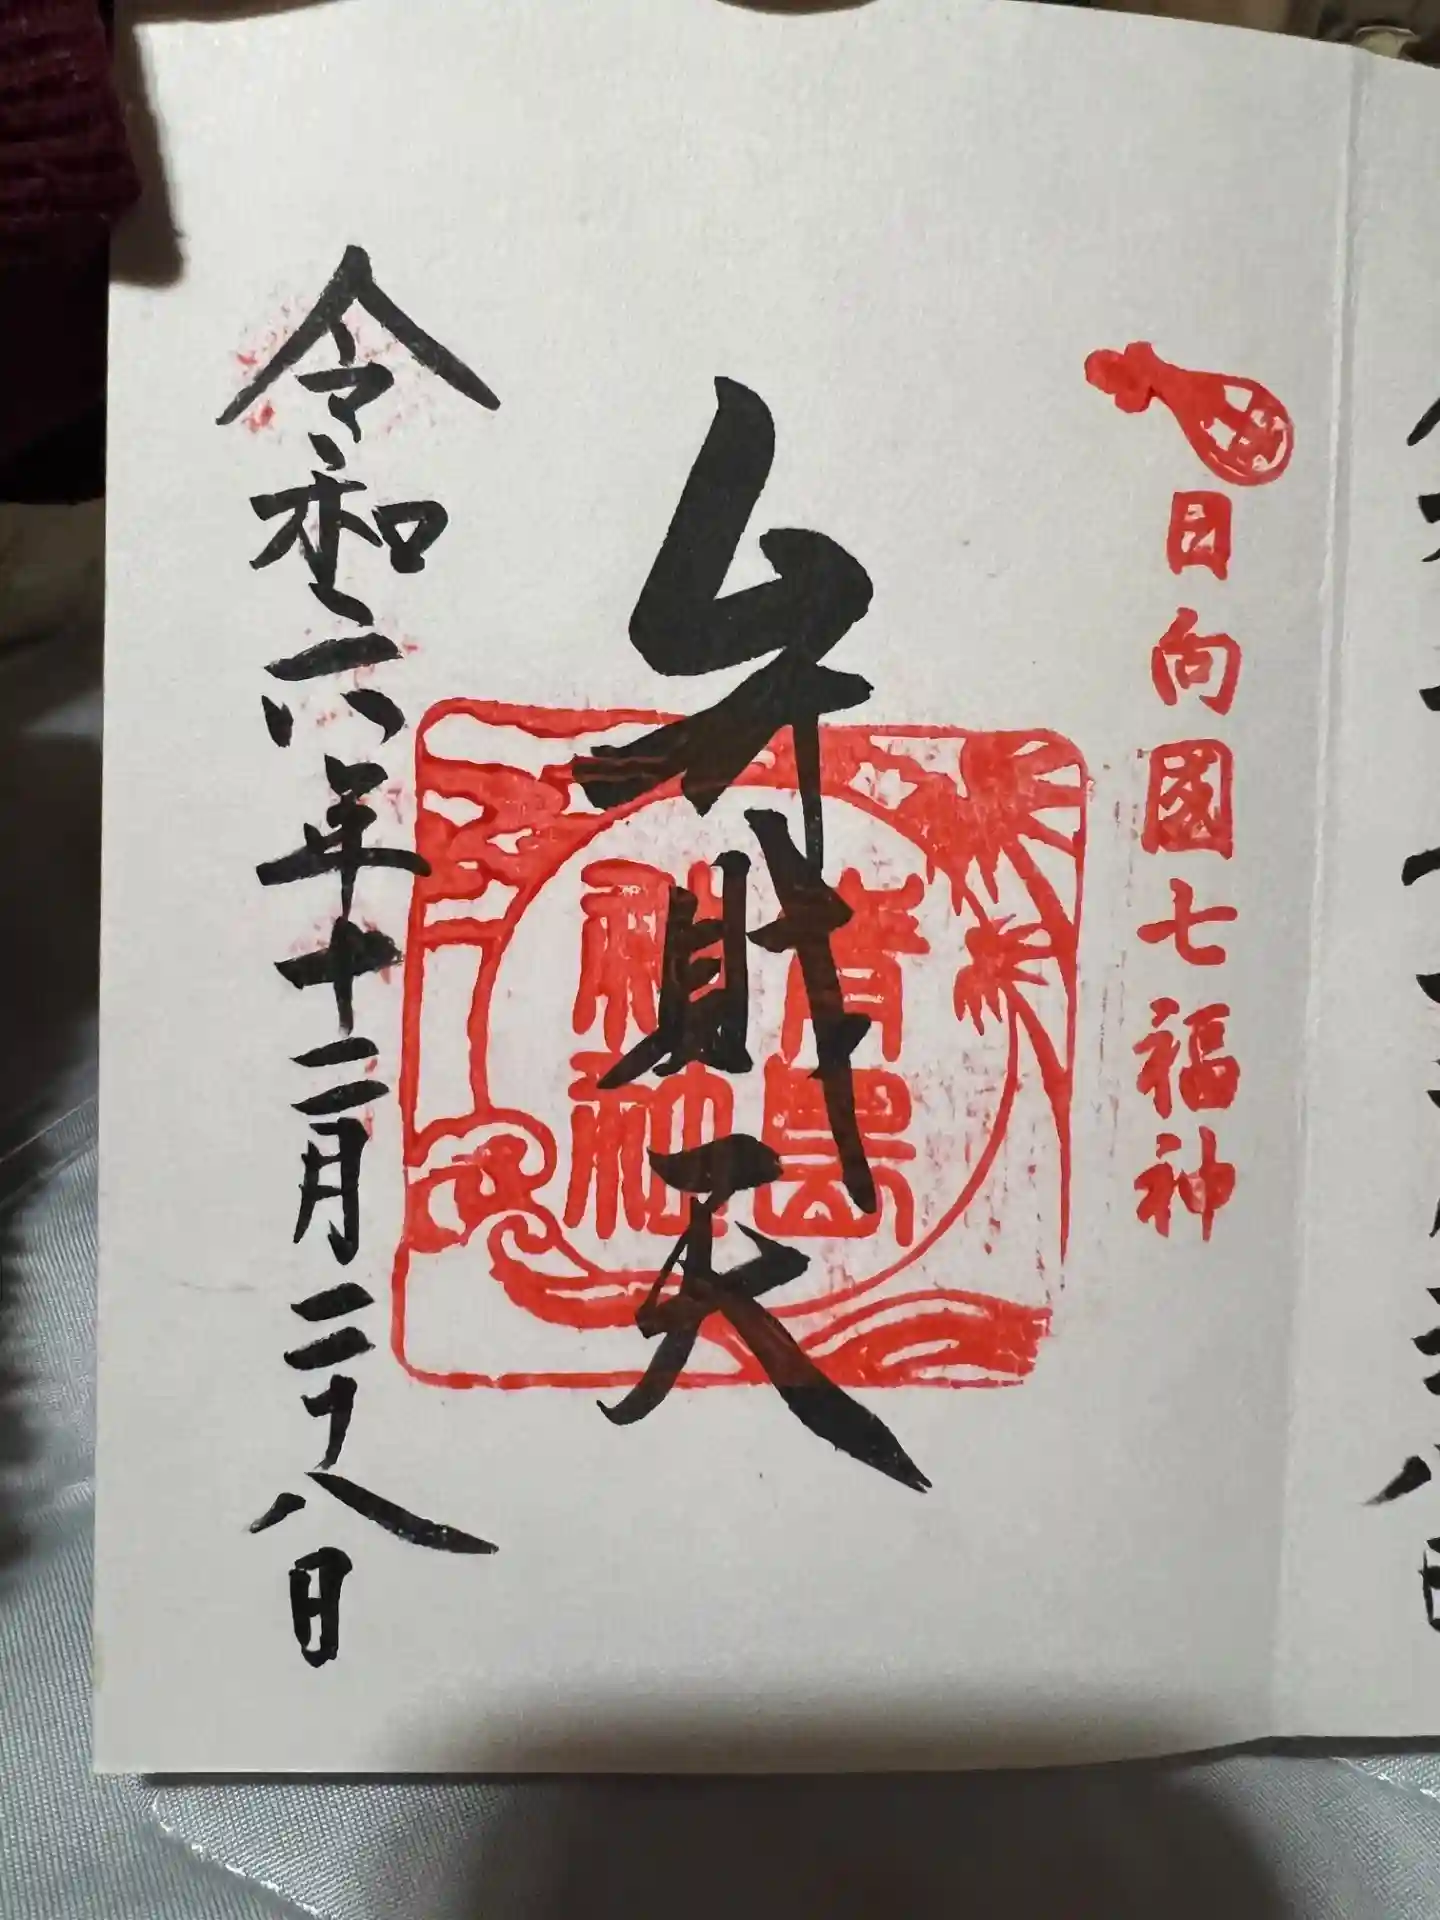 日向國七福神
弁財天
青島
神社
令和六年十二月二十八日